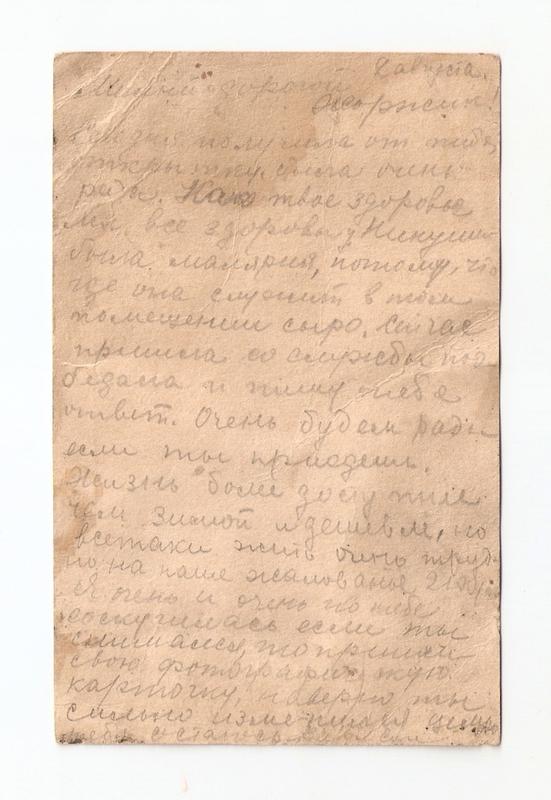 2 августа.
Милый дорогой
Жоржик!
Сегодня получила от тебя
открытку, была очень
рада. Как твое здоровье
мы, все здоровы, у Никуши
была малярия, потому, что
где она служит в том
помещении сыро. Сейчас
пришла со службы по-
бедала и пишу тебе
ответ. Очень будем рады
если ты приедешь.
Жизнь более доступнее
чем зимой и дешевле, но
всетаки жить очень труд-
но, на наше жалованье
Я очень и очень по тебе
соскучилась если ты
снимался, то пришли
свою фотографическую
карточку, наверно ты
сильно изменился
осталось